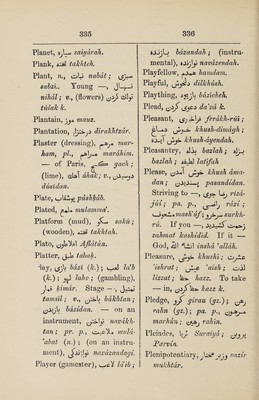 335
Planet, سياره saiyárah.
Plank, تخته takhteh.
Plant, n., نبات nabát; سبزى
sabzí. Young —, نهال
nihál; v., (flowers)
túlak k.
Plantain, موز mauz.
Plantation, درختزار dirakhtzár.
Plaster (dressing), مرهم mar-
ham, pl., مراهم maráhim.
— of Paris, گچ gach;
(lime), آهك áhák; v., دوسيدن
dúsídan.
Plate, پشقاب púshḳáb.
Plated, ملمع mulammaʻ.
Platform (mud), سكو sakú;
(wooden), تخته takhtah.
Plato, افلاطون Aflátún.
Platter, طبق ṭabaḳ.
lay, بازى bází (k.); لعب laʻb
(k.); لهو lahv; (gambling),
قمار ḳimár. Stage -, تمثيل
tamsíl; v., باختن bákhtan;
بازيدن bázídan. — on an
instrument, نواختن navákh-
tan; pr. p.,
ʻabat (n.); (on an instru-
ment), نوازندگى navázandagí.
Player (gamester), لاعب láʻib;
336
بازنده bázandah; (instru-
mental), نوازنده navázendah.
Playfellow, همدم hamdam.
Playful, دلخوش dilkhúsh.
Plaything, بازيچه bázícheh.
Plead, دعوى كردن daʻvá k.
Pleasant, فراخ رو firákh-rúí;
خوش دماغ khush-dimágh;
خوش آينده khush-áyendah.
Pleasantry, بذله bazlah; بذله
bazlah; لطيفه laṭífah
Please, خوش آمدن khush áma-
dan; پسنديدن pasandídan.
Striving to —, رضا جوى rizá-
júí; pa. p., راضى rází;
مشعوف mashʻúf; سرخ رو surkh-
rú. If you —, زحمت كشيديد
zaḥmat kashídíd. If it —
God, ان شاء الله inshá ʼalláh.
Pleasure, خوشى khushí; عشرت
ʻishrat; عيش ʻaish; لذت
lizzat; حظ ḥazz. To take
— in, حظ كردن ḥazz k.
Pledge, گرو girau (gz.); رهن
rahn (gz.); pa. p., مرهون
marhún; رهين rahín.
Pleiades, ثريا Suraiyá; پروين
Parvín.
Plenipotentiary, وزير مختار vazír
mukhtár.